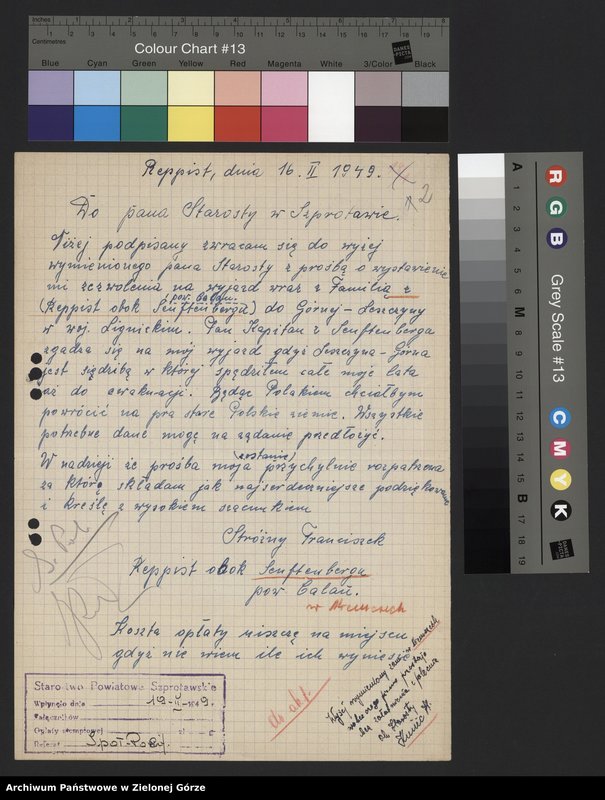 Inches 1 2 3 4 5 6 7 8
Centimetres 1 2 3 4 5 6 7 8 9 10 11 12 13 14 15 16 17 18 19
Colour Chart #13
Blue Cyan Green Yellow Red Magenta White 3/Color Black
DANES PICTA
Reppist, dnia 16. II 1949.
2
Do pana Starosty w Szprotawie.
Niżej podpisany zwracam się do wyżej
wymienionego pana Starosty z prośbą o wystawienie
mi zezwolenia na wyjazd wraz z Familią z
pow. Calau.
(Reppist obok Senftenberga) do Górny-Leszczyny
w woj. Lignickim. Pan Kapitan z Senftenberga
zgadza się na mój wyjazd gdyż Leszczyna-Górna
jest siędzibą w który spędziłem całe moje lata
aż do ewakuacji. Będąc Polakiem chciałbym
powrócić na pra stare Polskie ziemie. Wszystkie
potrzebne dane mogę na rządanie przedłożyć.
W nadzieji że prośba moja (zostanie) przychylnie rozpatrzona
za którą składam jak najserdeczniejsze podziękowanie
i kreślę z wysokiem szacunkiem
Stróżny Franciszek
Reppist obok Senftenberga
pow Calau.
w Niemczech
Koszta opłaty niszczę na miejscu
gdyż nie wiem ile ich wyniesie
Starostwo Powiatowe Szprotawskie
Wpłynęło dnia 19-II-1949.
Załączników
Opłaty stemplowej zł
Referat Społ-Pol.
do akt.
Wyżej wymieniony zam. w Niemczech
A 1 2 3 4 5 6 M 8 9 10 11 12 13 14 15 B 17 18 19
R G B
Grey Scale #13
C M Y K
DANES PICTA
Archiwum Państwowe w Zielonej Górze